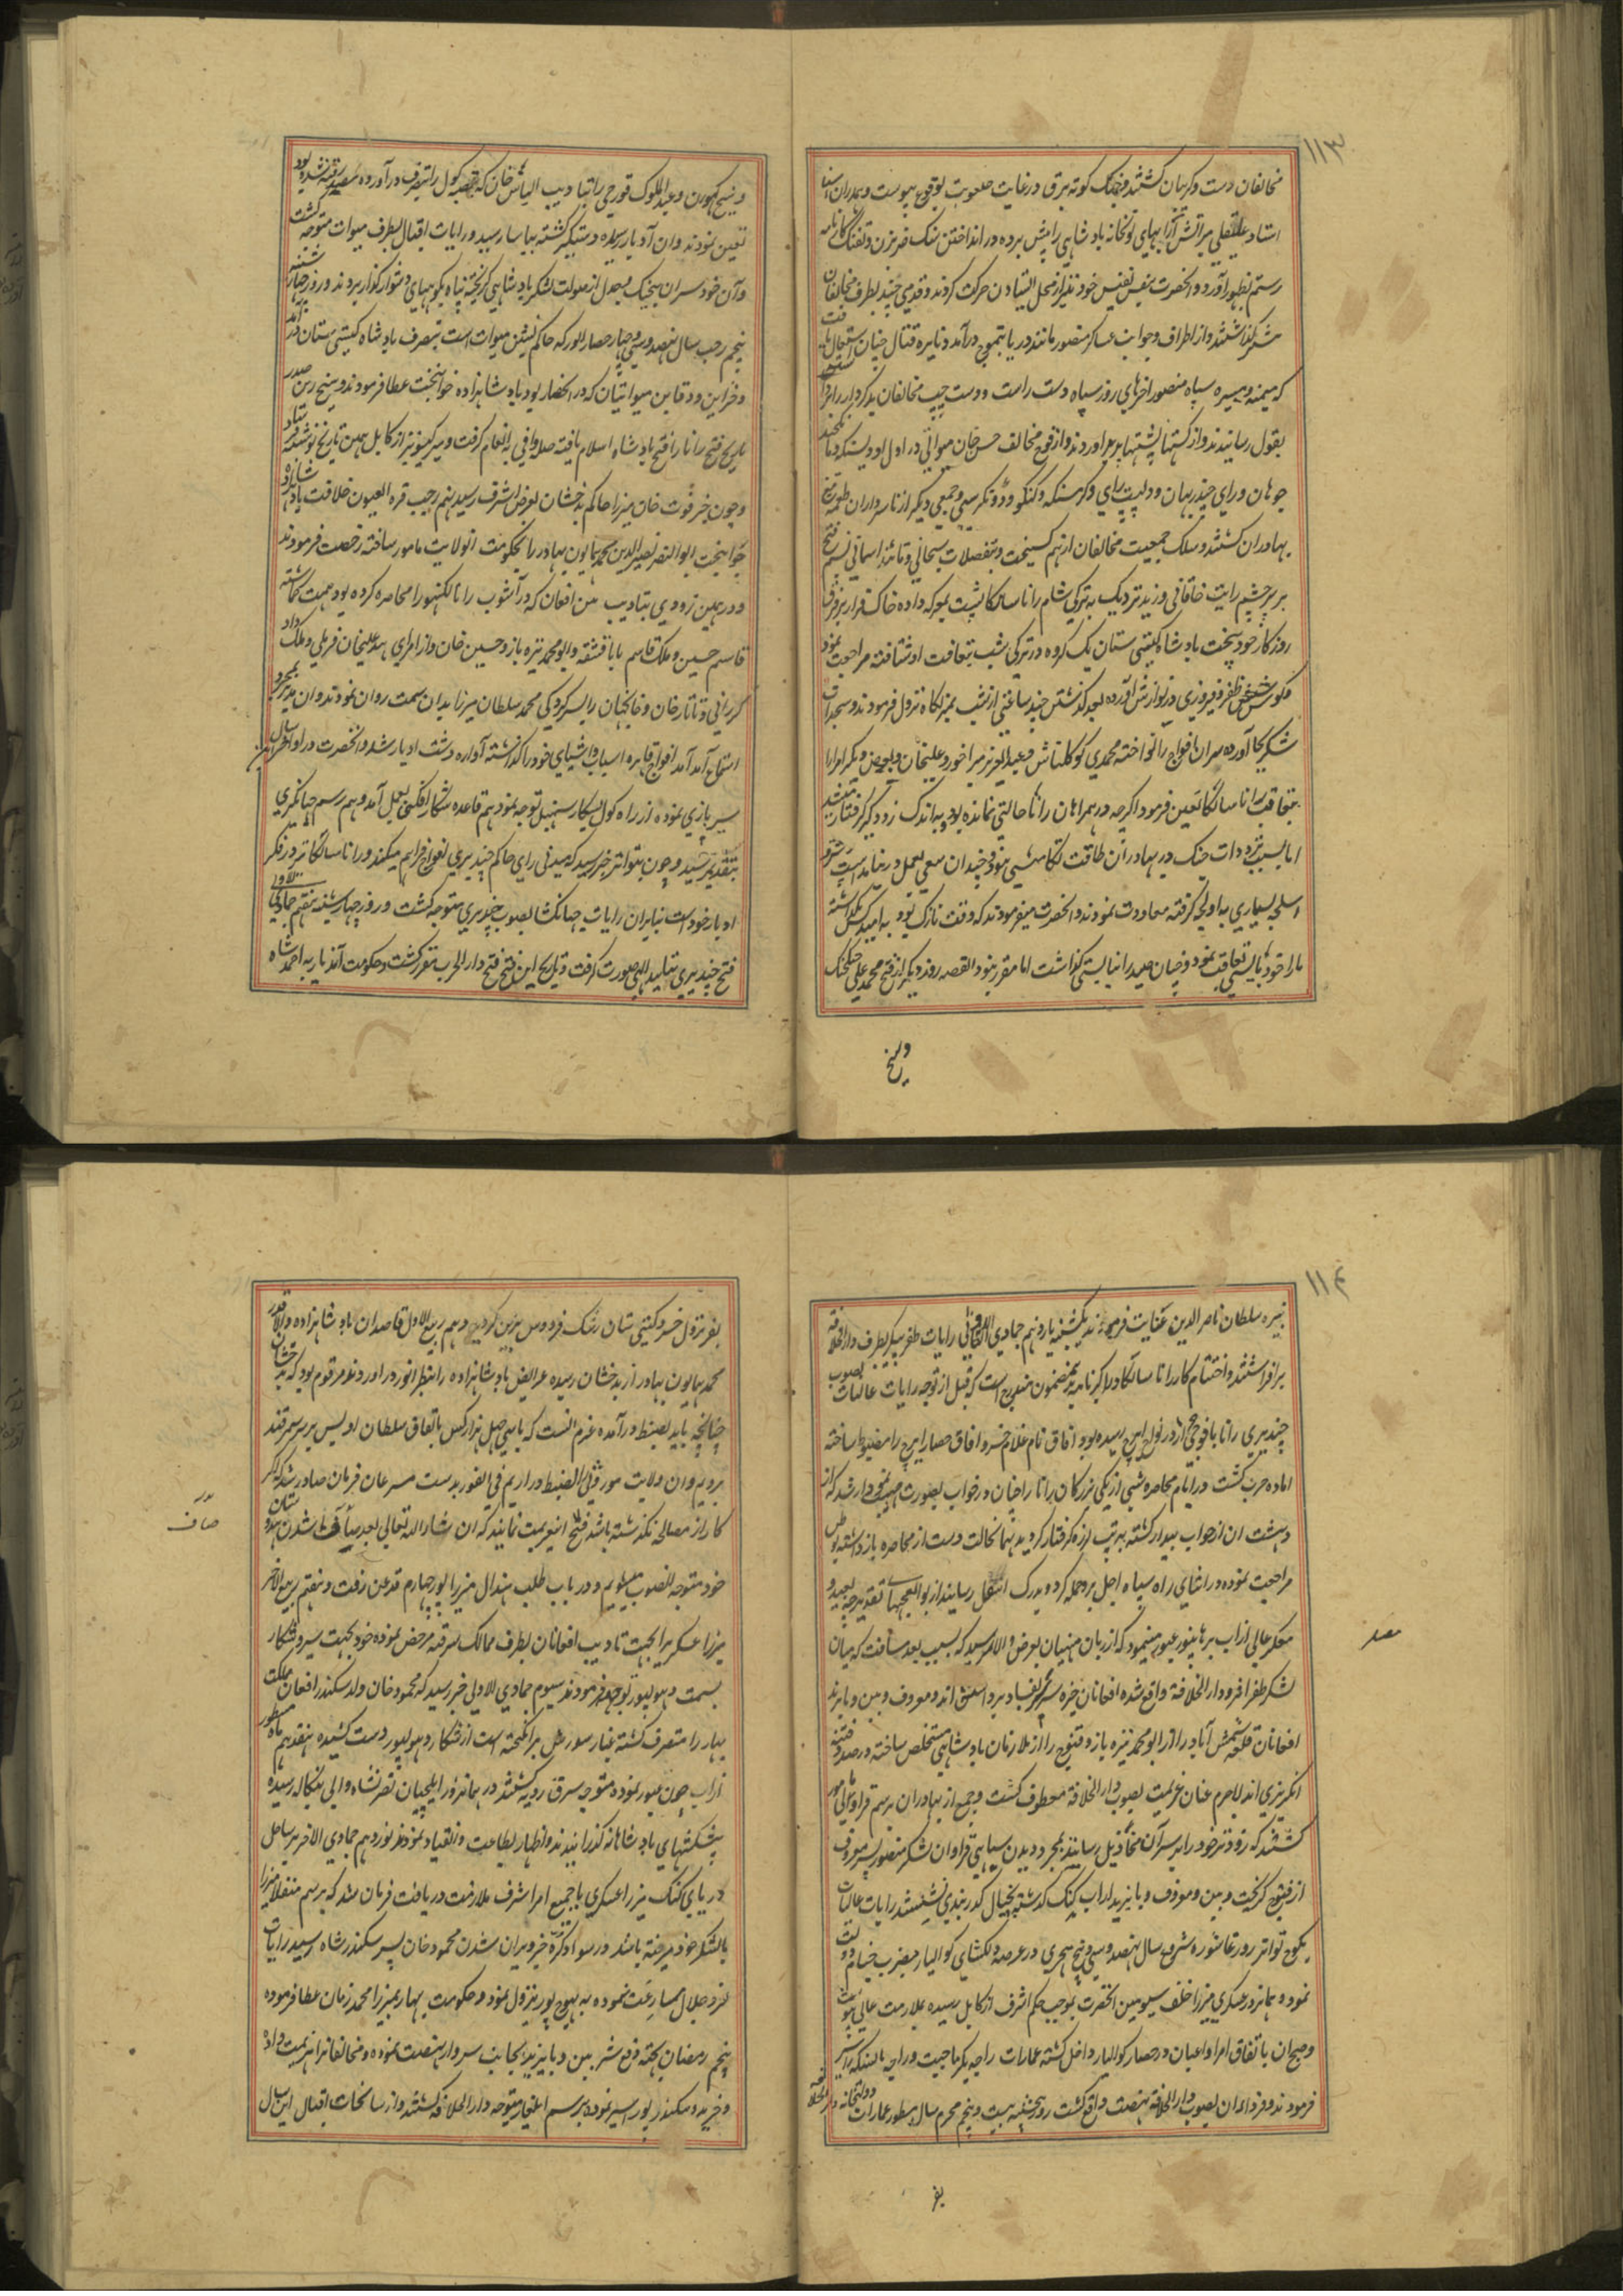 ۱۱۳
مخالفان دست و کریبان کشتند و جنک کوته یراق در غایت صعوبت بوقوع پیوست و بهادران
استاد علیقلی بر آتش ارابهای توپخانه بادشاهی را پیش برده در انداختن سنک ضربزن و تفنک کارنامه
رستم بظهور آورد و انحضرت بنفس نفیس خود نیز از محل ایستادن حرکت کردند و قدمی چند بطرف مخالفان
پیشتر گذاشتند و از اطراف و جوانب عساکر منصور مانند دریا بتموج درآمد و نایره قتال چنان اشتعال یافت
که میمنه و میسره سپاه منصور اخرهای روز سپاه دست راست و دست چپ مخالفان بدکردار را رانده
بقول رسانیدند و از کشتها پشتها برآوردند و از فوج مخالف حسن خان میواتی و راول اودیسنکه و مانکچند
چوهان و رای چندربهان و دلپت رای و کرمسنکه و کنکو و دونکرسی و جمعی دیکر از سرداران طعمه تیغ
بهادران کشتند و سلک جمعیت مخالفان از هم کسیخت و بتفضلات سبحانی و تائید اسمانی نسیم فتح
بر پرچم رایت خاقانی وزید نزدیک به تریکی شام رانا سانکا پشت بمعرکه داده خاک فرار بر فرق
روزکار خود بیخت بادشاه کیتی ستان یک کروه در تاریکی شب بتعاقب او شتافته مراجعت نمود
و کوس ظفر و فیروزی در نوازش آورده بعد گذشتن چند ساعتی از شب بمنزلکاه نزول فرمودند و سجدات
شکر بجا آورده سران افواج را نواخته محمدی کوکلتاش و عبدالعزیز میراخور و علیخان و بعض دیکر امرا را
بتعاقب رانا سانکا تعین فرمود اکرچه در همراهان رانا حالتی نمانده بود و باندک زود کیر کرفتار میشد
اما بسبب ترددات جنک در بهادران طاقت تکامیشی نبود و چندان سعی بعمل در نیامد
اسلحه بسیاری به اولجه کرفته معاودت نمودند و انحضرت میفرمودند که وقت نازک بود به امید کسی نگذاشته
مارا خود بایستی تعاقب نمود و چنان صید را نبایستی گذاشت اما مقرر نبود القصه روز دیکر از فتح محمد علی جنکجنک
و شیخ
و شیخ کهورن و عبدالملوک قورچی را بتادیب الیاس خان که قصبه کول را بتصرف درآورده بود
تعین نمودند و ان آدبار رسیده دستکیر کشته بیاسا رسید و رایات اقبال بطرف میوات متوجه کشت
و آن خودسران بیجنک و جدل از صولت لشکر بادشاهی کریخته پناه بکوههای دشوار گذار بردند و روز چهارشنبه
پنجم رجب سال نهصد و سی و چهار حصار الور که حاکم نشین میوات است بتصرف بادشاه کیتی ستان درآمد
و خزاین و دفاین میواتیان که در انحصار بود بادشاهزاده جوانبخت عطا فرمودند و شیخ زین صدر
تاریخ فتح رانا را فتح بادشاه اسلام یافته صله وافی بانعام کرفت و میر کیسو نیز از کابل همین تاریخ نوشته فرستاد
و چون خبر فوت خان میرزا حاکم بدخشان بعرض اشرف رسید نهم رجب قره العیون خلافت بادشاهزاده
جوانبخت ابوالنصر نصیرالدین محمد همایون بهادر را بحکومت انولایت مامور ساخته رخصت فرمودند
و در همین زودی بتادیب بین افغان که در آشوب رانا لکهنو را محاصره کرده بود همت کماشته
قاسم حسین و ملک قاسم بابا قشقه و ابو محمد نیزه باز و حسین خان و از امرای هند علیخان فرملی و ملک داد
کررانی و تاتارخان و خانجهان را بسرکردکی محمد سلطان میرزا بدان سمت روان نمودند و ان مدبر بمجرد
استماع آمد آمد افواج قاهره اسباب و اشیای خود را گذاشته آواره دشت ادبار شد و انحضرت در اواخر سال
سیر بازی نموده از راه کول بشکار سنبهل توجه نمود هم قاعده شکار افکنی بعمل آمد و هم رسم جهانکیری
بتقدیم رسید و چون بتواتر خبر رسید که میدنی رای حاکم چندیری افواج فراهم میکند و رانا سانکا نیز در فکر
ادبار خود است بنابران رایات جهانکشا بصوب چندیری متوجه کشت و روز چهارشنبه هفتم جمادی الاولی
فتح چندیری بتائید الهی صورت کرفت و تاریخ این فتح فتح دارالحرب مقرر کشت و حکومت آندیار به احمد شاه
۱۱۴
نبیره سلطان ناصرالدین عنایت فرمودند یکشنبه یازدهم جمادی الاولی رایات ظفر پیکر بطرف دارالخلافه
برافراشتند و اختتام کار رانا سانکا در اکبرنامه بدینمضمون مندرج است که قبل از توجه رایات عالیات بصوب
چندیری رانا با فوجی در نواح ایرج رسیده بود افاق نام غلام خسرو افاق حصار ایرج را مضبوط ساخته
اماده حرب کشت در ایام محاصره شبی از یکی بزرکان رانا را چنان در خواب بصورت مهیب نمودار شد که از
دهشت ان از خواب بیدار کشته به تب لرزه کرفتار کردید بهمانحالت دست از محاصره باز داشته
مراجعت نموده در اثنای راه سپاه اجل برو حمله کرد و بدرک اسفل رسانید از بوالعجبیهای تقدیر چه بعید و
معسکر عالی از اب برهانپور عبور مینمود که از زبان منهیان بعرض والا رسید که بسبب بعد مسافت که میان
لشکر ظفر اثر و دارالخلافة واقع شده افغانان خیره سر سر بفساد برداشته اند و معروف و بین و بایزید
افغانان قلعه شمش آباد را از ابو محمد نیزه باز و قنوج را از ملازمان بادشاهی مستخلص ساخته در صدد فتنه
انکریزی اند لاجرم عنان عزیمت بصوب دارالخلافة معطوف کشت و جمعی از بهادران برسم قراولی مامور
کشتند که زودتر خود را بر سر آن مخاذیل رسانند بمجرد دیدن سیاهی قراولان لشکر منصور پسر معروف
از قنوج کریخت و بین و معروف و بایزید از اب کنک گذشته بخیال گذربندی نشستند رایات عالیات
بکوچ تواتر روز عاشوره شروع سال نهصد و سی و پنج هجری در عرصه دلکشای کوالیار مضرب خیام دولت
نمود و همانروز عسکری میرزا خلف سیومین انحضرت بموجب حکم اشرف از کابل رسیده بملازمت عالی
و صبح ان باتفاق امرا و اعیان در حصار کوالیار داخل کشته عمارات راجه بکرماجیت و راجه مانسنکه را سیر
فرمودند و فردای ان بصوب دارالخلافه نهضت واقع کشت روز پنجشنبه بیست و پنجم محرم سال مسطور عمارات دولتخانه دارالخلافه
بفر
معسکر
بفر نزول خسرو کیتی ستان رشک فردوس برین کردید دهم ربیع الاول قاصدان بادشاهزاده والاقدر
محمد همایون بهادر از بدخشان رسیده عرایض بادشاهزاده را بنظر انور دراوردند مرقوم بود که بدخشان
چنانچه باید بضبط درآمده عزم انست که با سی چهل هزار کس باتفاق سلطان اویس بر سر سمرقند
برویم و ان ولایت موروثی را بضبط دراریم فی الفور بدست مسرعان فرمان صادر شد که اکر
کار از مصالحه نکذشته باشد فتح انعزیمت نمایند که ان شاء الله تعالی بعد صاف شدن هندوستان
خود متوجه انصوب میشویم و در باب طلب هندال میرزا پور چهارم قدغن رفت و هفتم ربیع الاخر
میرزا عسکریرا بجهت تادیب افغانان بطرف ممالک شرقیه مرخص نموده خود بجهت سیر و شکار
بسمت دهولپور توجه فرمودند سیوم جمادی الاولی خبر رسید که محمود خان ولد سکندر افغان مملکت
بهار را متصرف کشته غبار شورش برانکیخته است از شکار دهولپور دست کشیده هفدهم ماه مسطور
از اب جون عبور نموده متوجه شرق رویه کشتند در همانروز ایلچیان نصرتشاه والی بنکاله رسیده
پیشکشهای بادشاهانه گذرانیدند و اظهار اطاعت و انقیاد نمودند نوزدهم جمادی الاخر بر ساحل
دریای کنک میرزا عسکری با جمیع امرا شرف ملازمت دریافت فرمان شد که برسم منقلا میرزا
بالشکر خود میرفته باشد در سواد کره خبر ویران شدن محمود خان پسر سکندر شاه رسید رایات
عز و جلال مسارعت نموده به بهوجپور نزول نمود و حکومت بهار بمیرزا محمد زمان عطا فرموده
پنجم رمضان بجهته دفع شر بین و بایزید بجانب سروار نهضت نموده و مخالفانرا هزیمت داده
و خرید و سکندرپور اسیر نموده برسم ایلغار متوجه دارالخلافه کشتند و از سانحات اقبال این سال
صاف